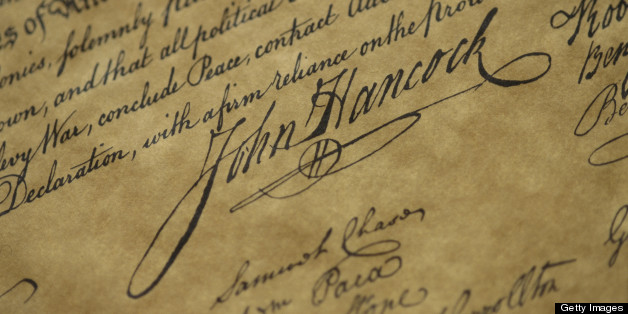 s of
onies, solemnly
own, and that all political
evy War, conclude Peace, contract
Declaration, with a firm reliance on the
John Hancock
Samuel Chase
Wm Paca
Carrollton
Getty Images